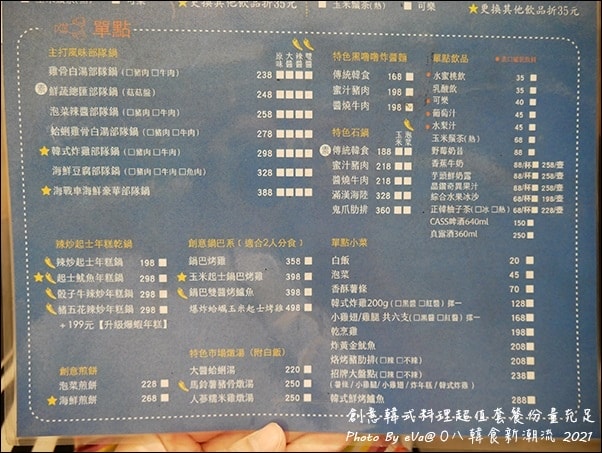 更換其他飲品折35元
玉米鬚茶(熱)
可樂
★更換其他飲品折35元
單點
主打風味部隊鍋
原味 大醬 辣醬 雙醬
雞骨白湯部隊鍋 (□豬肉 □牛肉) 238
鮮蔬總匯部隊鍋 (菇菇盤) 248
泡菜辣醬部隊鍋 (□豬肉 □牛肉) 258
蛤蜊雞骨白湯部隊鍋 (□豬肉 □牛肉) 278
★韓式炸雞部隊鍋 (□豬肉 □牛肉) 298
海鮮豆腐部隊鍋 (□豬肉 □牛肉 □魚肉) 328
★海戰車海鮮豪華部隊鍋 388
特色黑嚕嚕炸醬麵
傳統韓食 168
蜜汁豬肉 198
醬燒牛肉 198
特色石鍋
玉米 泡菜
傳統韓食 188
蜜汁豬肉 218
醬燒牛肉 218
滿漢海陸 328
鬼爪肋排 360
單點飲品
水蜜桃飲 35
乳酸飲 35
可樂 40
葡萄汁 45
水梨汁 45
玉米鬚茶(熱) 65
野莓奶昔 88
香蕉牛奶 88/杯 258/壺
芋頭鮮奶露 88/杯 258/壺
晶鑽奇異果汁 88/杯 258/壺
綜合水果冰沙 68/杯 198/壺
正韓柚子茶(□冰 □熱) 88/杯 228/壺
CASS啤酒640ml 150
真露酒360ml 250
辣炒起士年糕乾鍋
辣炒起士年糕鍋 198
★起士魷魚年糕鍋 298
骰子牛辣炒年糕鍋 298
豬五花辣炒年糕鍋 298
+199元【升級爆蝦年糕】
創意鍋巴系(適合2人分食)
鍋巴烤雞 358
★玉米起士鍋巴烤雞 398
鍋巴雙醬烤鱸魚 398
爆炸蛤蠣玉米起士烤雞 498
單點小菜
白飯 20
泡菜 45
香酥薯條 70
韓式炸雞200g (□黑醬 □紅醬) 擇一 128
小雞翅/雞腿 共六支(□黑醬 □紅醬) 擇一 168
乾烹雞 188
炸黃金魷魚 208
烙烤豬肋排(□辣 □不辣) 208
招牌大盤點(□辣 □不辣) 238
(薯條/小雞腿/小雞翅/炸年糕/韓式炸雞)
韓式鮮烤鱸魚 288
創意煎餅
泡菜煎餅 228
★海鮮煎餅 268
特色市場燉湯(附白飯)
大醬蛤蜊湯 220
馬鈴薯豬骨燉湯 250
人蔘糯米雞燉湯 250
創意韓式料理超值套餐份量充足
Photo By eVa@ O八韓食新潮流 2021